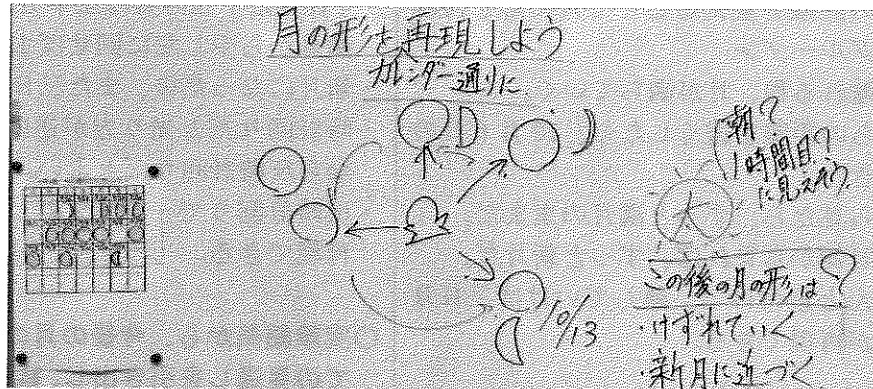 月の形を再現しよう
カレンダー通りに
朝?
1時間目?
に見えそう
太
10/13
この後の月の形は?
・けずれていく
・新月に近づく